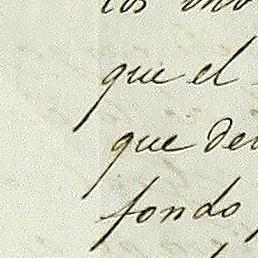 los
que el
que de
fondo